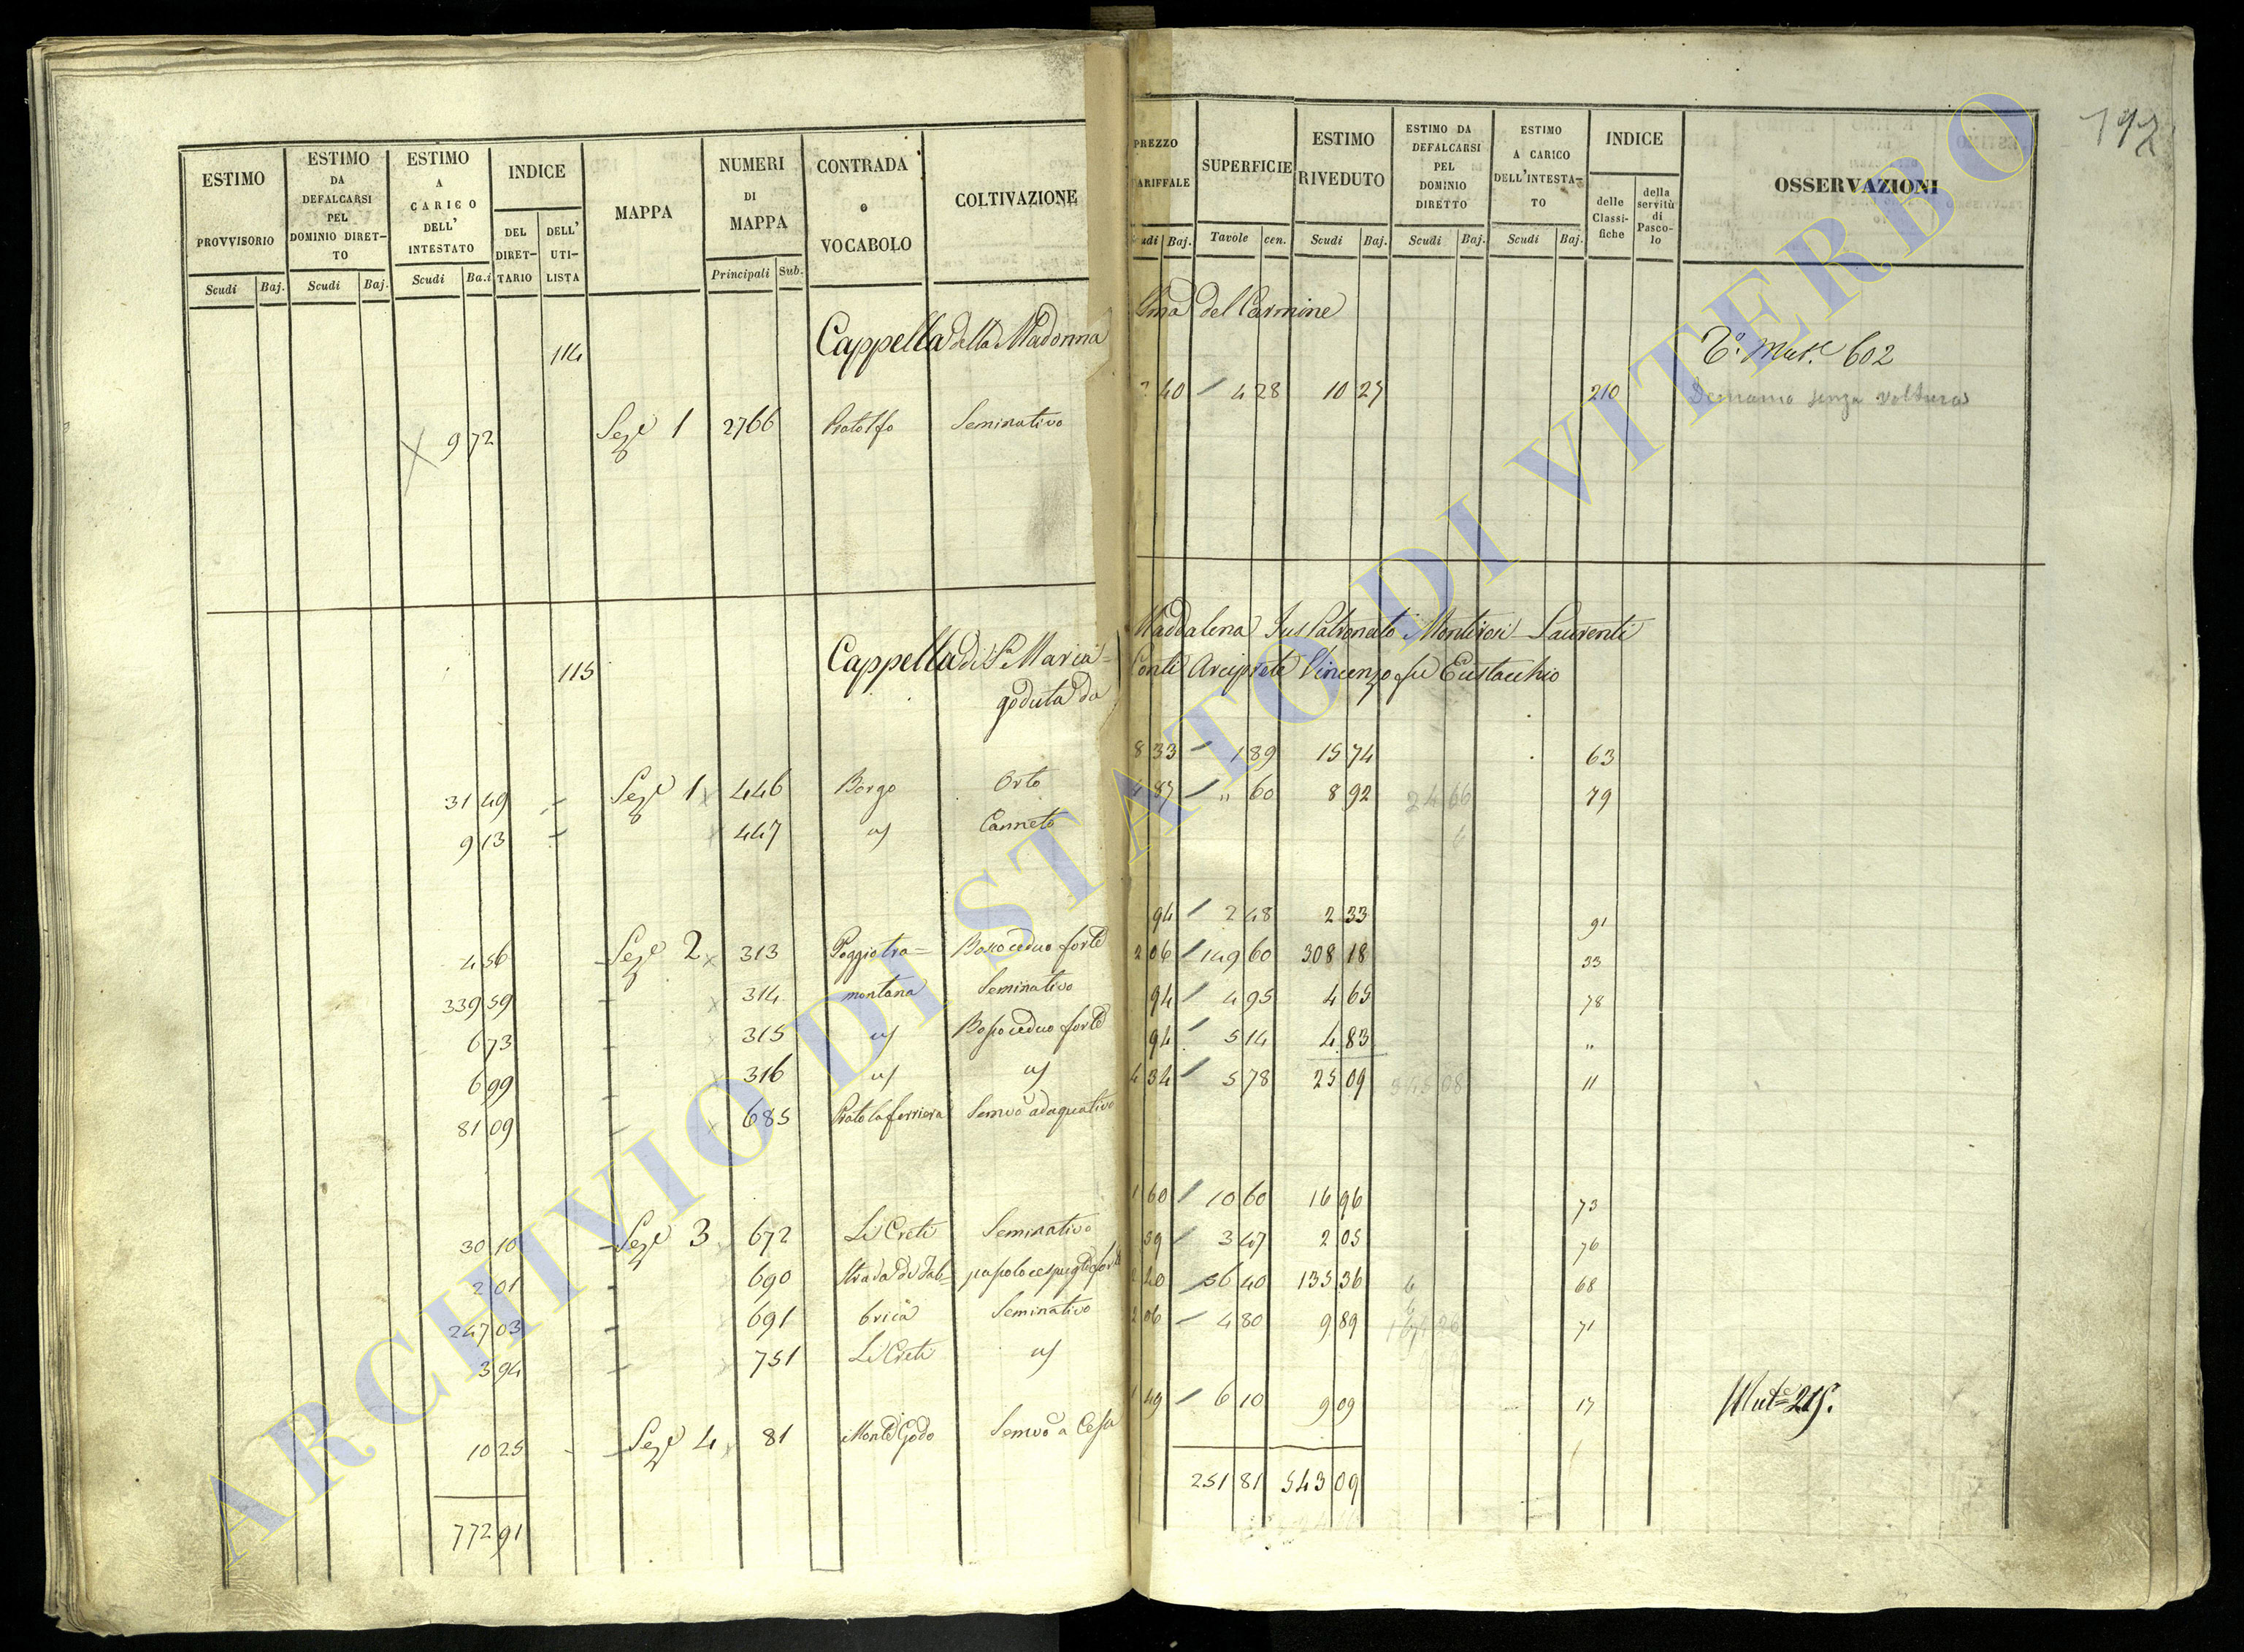 192
ESTIMO
PROVVISORIO
Scudi Baj.
ESTIMO
DA
DEFALCARSI
PEL
DOMINIO DIRET-
TO
Scudi Baj.
ESTIMO
A
CARICO
DELL'
INTESTATO
Scudi Ba.i
INDICE
DEL
DIRET-
TARIO
DELL'
UTI-
LISTA
MAPPA
NUMERI
DI
MAPPA
Principali Sub.
CONTRADA
o
VOCABOLO
COLTIVAZIONE
PREZZO
TARIFFALE
Scudi Baj.
SUPERFICIE
Tavole cen.
ESTIMO
RIVEDUTO
Scudi Baj.
ESTIMO DA
DEFALCARSI
PEL
DOMINIO
DIRETTO
Scudi Baj.
ESTIMO
A CARICO
DELL'INTESTA-
TO
Scudi Baj.
INDICE
delle
Classi-
fiche
della
servitù
di
Pasco-
lo
OSSERVAZIONI
114 Cappella della Madonna SSma del Carmine
Mut.e 602
Demanio senza voltura
9 72 Seze 1 2766 Pratolfo Seminativo 2 40 4 28 10 27 210
115 Cappella di Sa Maria = Maddalena Jus Patronato Montirosi = Laurenti
goduta da Conti Arciprete Vincenzo fu Eustacchio
31 49 Seze 1 446 Borgo Orto 8 33 1 89 15 74 63
9 13 447 " Canneto 4 87 " 60 8 92 24 66 79
4 56 Seze 2 313 Poggio tra= Bosco ceduo forte 94 2 48 2 33 91
339 59 314 montana Seminativo 2 06 149 60 308 18 33
6 73 315 " Bosco ceduo forte 94 4 95 4 65 78
6 99 316 " " 94 5 14 4 83 "
81 09 685 Prato la ferriera Semvo adaquativo 4 34 5 78 25 09 345 08 11
30 10 Seze 3 672 Li Creti Seminativo 1 60 10 60 16 96 73
2 01 690 Strada di Fab= pascolo cespugliato forte 59 3 47 2 05 76
247 03 691 brica Seminativo 2 40 56 40 135 36 68
3 94 751 Li Creti " 2 06 4 80 9 89 71
10 25 Seze 4 81 Monte Godo Semvo a Cesa 1 49 6 10 9 09 17 Mute 215.
772 91 251 81 543 09
ARCHIVIO DI STATO DI VITERBO